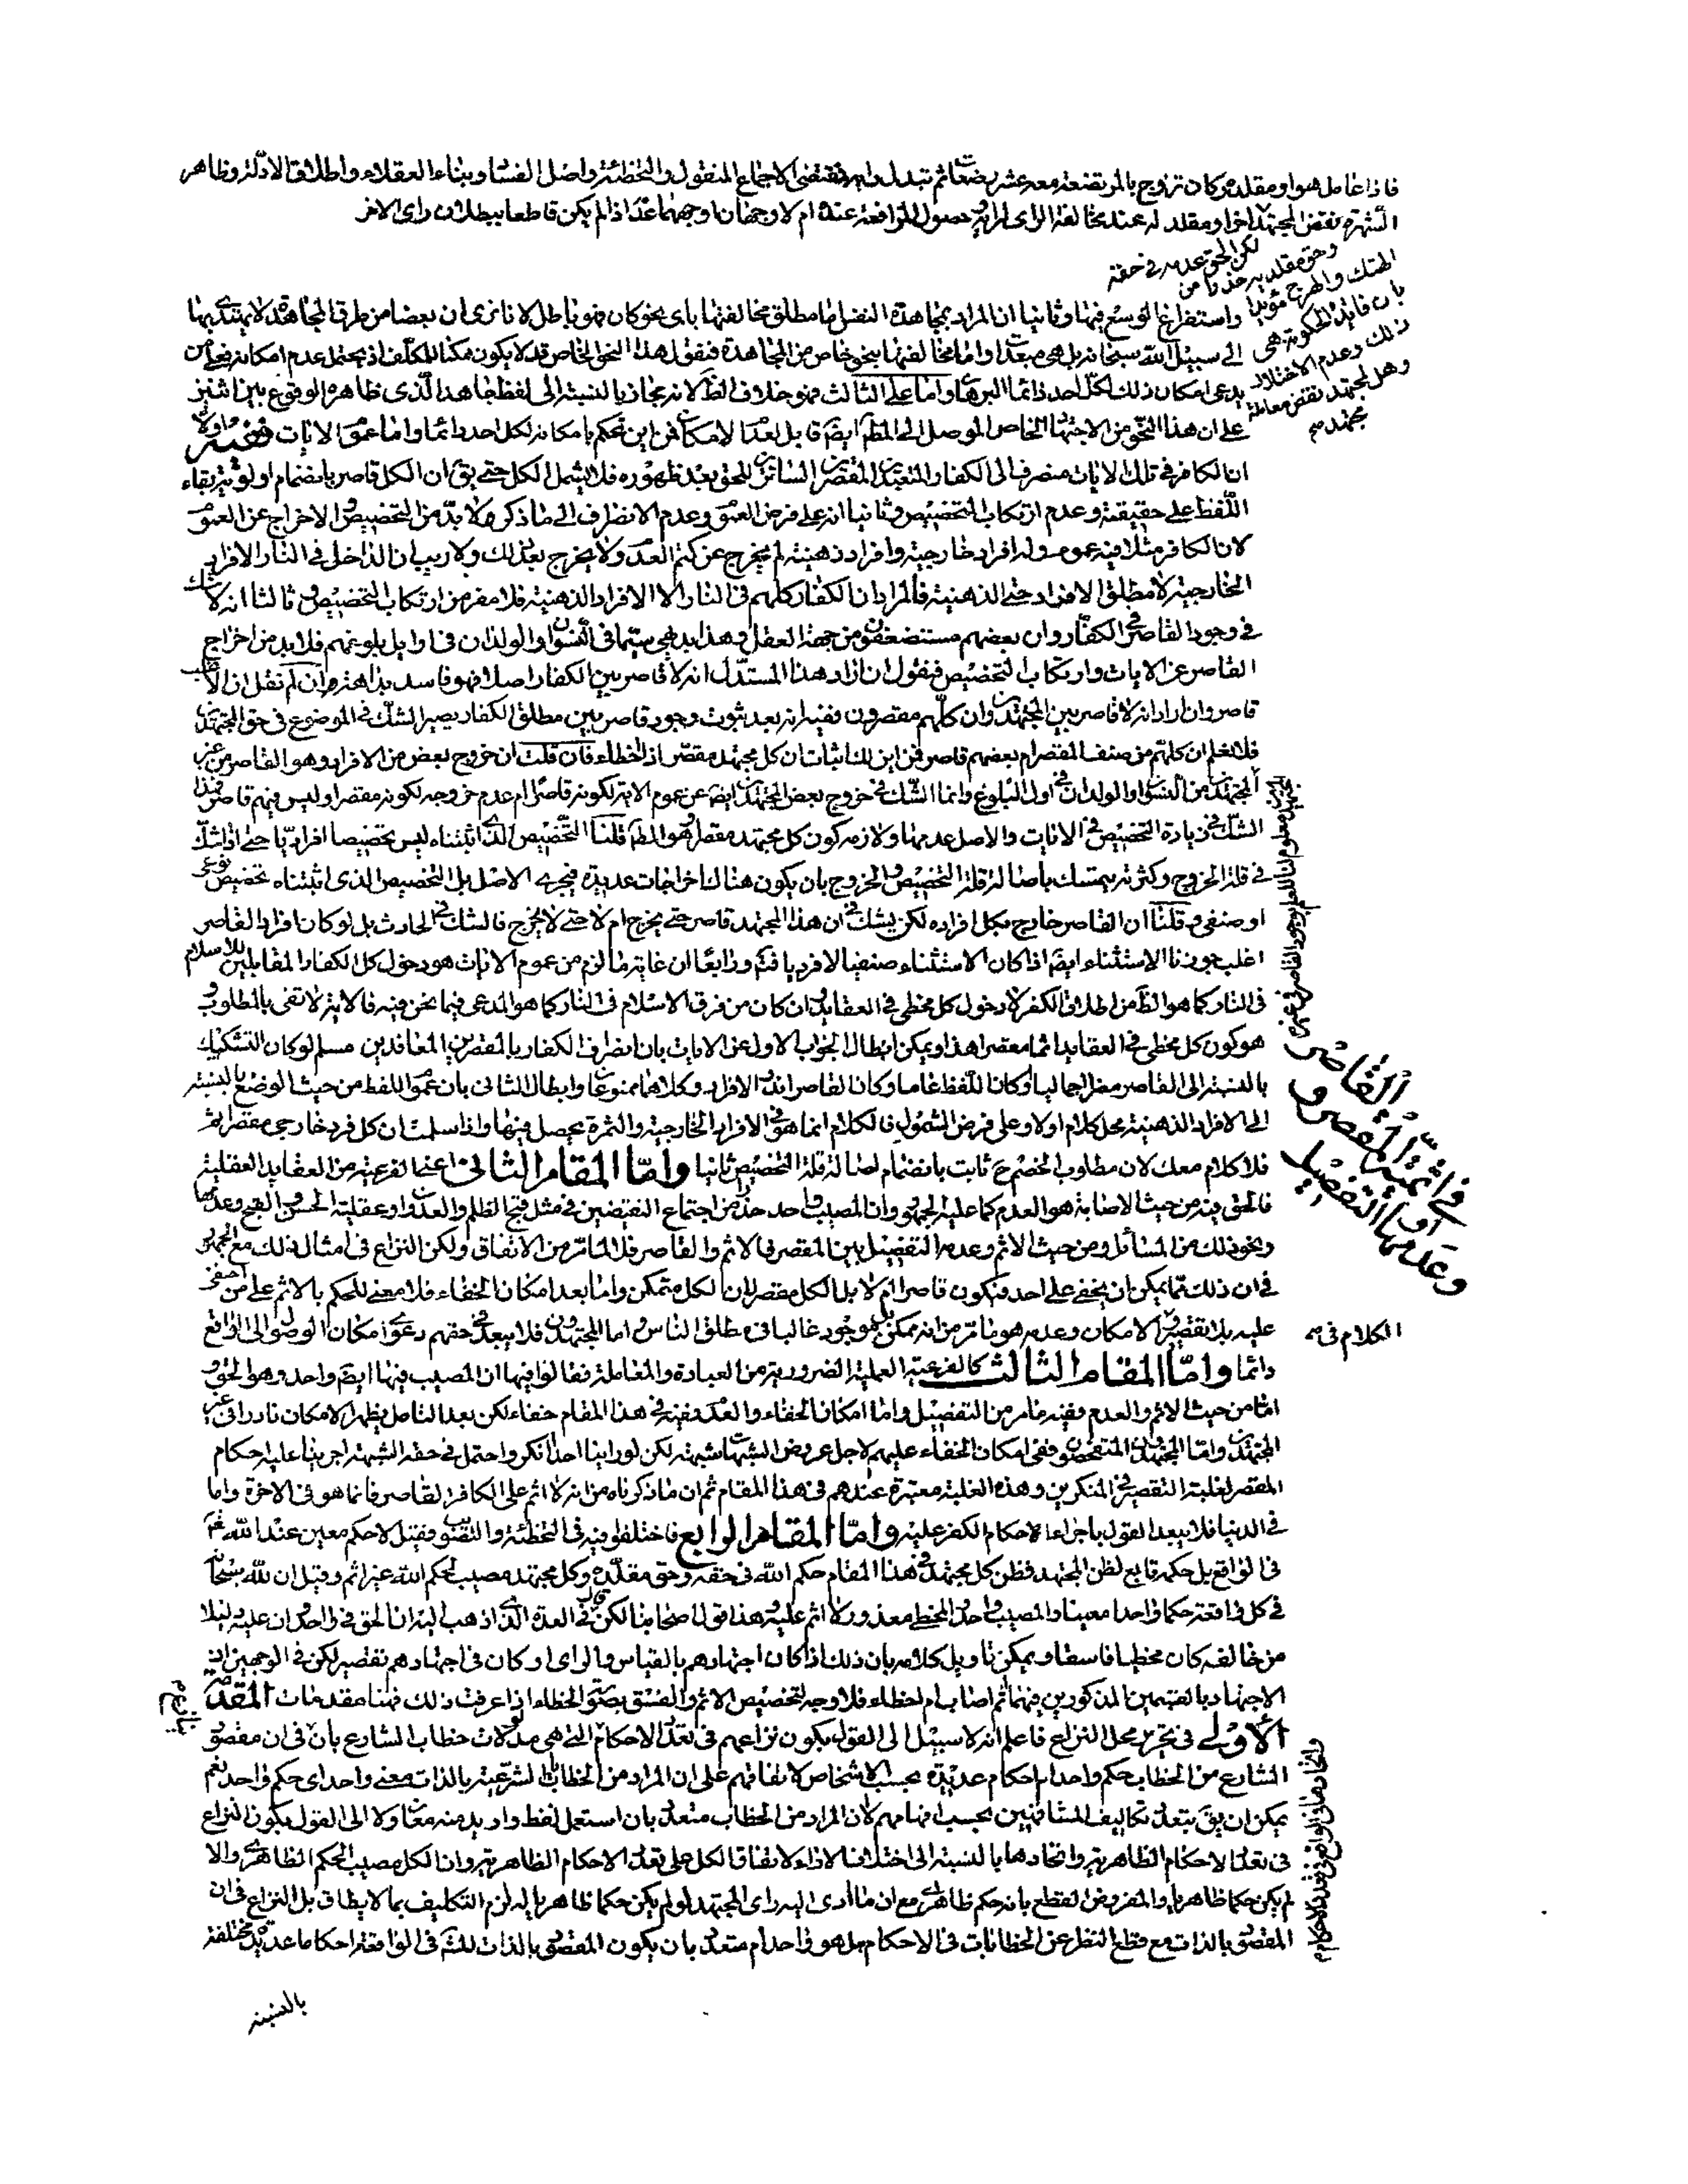 فاذا عامل هو او مقلده وكان تزوج بالمرتضعة معه عشر رضعات ثم تبدل رايه فمقتضى الاجماع المنقول والتخطئة واصل الفساد وبناء العقلاء واطلاق الادلة وظاهر
الشهرة نقض المجتهد اخر او مقلد له عند مخالفة الراى لرايه حصول المرافعة عنده ام لا وجهان اوجههما عدا اذا لم يكن قاطعا ببطلان راى الاخر
لكن الحق عدمه فى حقه
وحق مقلديه حذرا من
الهتك والهرج مؤيدا
بان فايدة الحكومة هى
ذلك وعدم الاختلال
وهل لمجتهد نقض معاملة
مجتهد
واستفراغ الوسع فيها وثانيا ان المراد بمجاهدة النفس اما مطلق مخالفتها باى نحو كان فهو باطل لانا نرى ان بعضا من طرق المجاهدة لا يهتدى بها
الى سبيل الله سبحانه بل هى مبعدة واما مخالفتها بنحو خاص من المجاهدة فنقول هذا النحو الخاص قد لا يكون ممكنا للمكلف اذ يحتمل عدم امكانه فعلى من
يدعى امكان ذلك لكل احد دائما البرهان واما على الثالث فهو خلاف الظ لانه مجاز بالنسبة الى لفظ جاهد الذى ظاهره الوقوع بين اثنين
على ان هذا النحو من الاجتهاد الخاص الموصل الى المط ايضا قابل لعدم الامكان فمن اين تحكم بامكانه لكل احد دائما واما عموم الايات ففيه اولا
ان الكافر فى تلك الايات منصرف الى الكفار المتعبدين المقصرين الساترين للحق بعد ظهوره فلا يشمل الكل حتى يق ان الكل قاصر بانضمام اولوية بقاء
اللفظ على حقيقته وعدم ارتكاب التخصيص وثانيا انه على فرض العموم وعدم الانصراف الى ما ذكر فلا بد من التخصيص والاخراج عن العموم
لان الكافر مثلا فيه عموم وله افراد خارجية وافراد ذهنية لم يخرج عن كتم العدم ولا يخرج بعد ذلك ولا ريب ان الداخل فى النار الافراد
الخارجية لا مطلق الافراد حتى الذهنية فالمراد ان الكفار كلهم فى النار الا الافراد الذهنية فلا مفر من ارتكاب التخصيص وثالثا انه لا شك
فى وجود القاصر فى الكفار وان بعضهم مستضعفون من جهة العقل وهذا بديهى سيما فى النسوان والولدان فى اوايل بلوغهم فلا بد من اخراج
القاصر عن الايات وارتكاب التخصيص فنقول ان اراد هذا المستدل انه لا قاصر بين الكفار اصلا فهو فاسد بداهة وان لم نقل ان الاغلب
قاصر وان اراد انه لا قاصر بين المجتهدين وان كلهم مقصرون ففيه انه بعد ثبوت وجود قاصر بين مطلق الكفار يصير الشك فى الموضوع فى حق المجتهدين
فلا نعلم ان كلهم من صنف المقصر ام بعضهم قاصر فمن اين لك اثبات ان كل مجتهد مقصر اذا اخطاء فان قلت ان خروج بعض من الافراد وهو القاصر من غير
المجتهدين من النسوان والولدان فى اول البلوغ وانما الشك فى خروج بعض المجتهدين ايضا عن عموم الاية لكونه قاصرا ام عدم خروجه لكونه مقصرا وليس فيهم قاصر فهذا
الشك فى زيادة التخصيص فى الايات والاصل عدمها ولازمه كون كل مجتهد مقصرا وهو المط قلنا التخصيص الذى اثبتناه ليس تخصيصا افراديا حتى اذا شك
فى قلة الخروج وكثرته يتمسك باصالة قلة التخصيص والخروج بان يكون هناك اخراجات عديدة فيجرى الاصل بل التخصيص الذى اثبتناه تخصيص نوعى
او صنفى وقلنا ان القاصر خارج بكل افراده لكن يشك فى ان هذا المجتهد قاصر حتى يخرج ام لا حتى لا يخرج فالشك فى الحادث بل لو كان افراد القاصر
اغلب جوزنا الاستثناء ايضا اذا كان الاستثناء صنفيا لا افراديا فتم ورابعا ان غاية ما لزم من عموم الايات هو دخول كل الكفار المقابلين للاسلام
فى النار كما هو الظ من اطلاق الكفر لا دخول كل مخطى فى العقايد وان كان من فرق الاسلام فى النار كما هو المدعى فيما نحن فيه فالاية لا تفى بالمطلوب و
هو كون كل مخطى فى العقايد اثما مقصرا هذا ويمكن ابطال الجواب الاول عن الايات بان انصراف الكفار بالمقصرين المعاندين مسلم لو كان التشكيك
بالنسبة الى القاصر مضرا اجماليا وكان اللفظ عاما وكان القاصر اندر الافراد وكلاهما ممنوعان وابطال الثانى بان عموم اللفظ من حيث الوضع بالنسبة
الى الافراد الذهنية محل كلام اولا وعلى فرض الشمول فالكلام انما هو فى الافراد الخارجية والثمرة يحصل فيها واذا سلمت ان كل فرد خارجى مقصر اثم
فلا كلام معك لان مطلوب الخصم ح ثابت بانضمام اصالة قلة التخصيص ثانيا واما المقام الثانى اعنى الفرعية من العقايد العقلية
فالحق فيه من حيث الاصابة هو العدم كما عليه الجمهور وان المصيب واحد حذرا من اجتماع النقيضين فى مثل قبح الظلم والعدوان وعقلية الحسن والقبح وعدمها
ونحو ذلك من المسائل ومن حيث الاثم وعدمه التفصيل بين المقصر بالاثم والقاصر فلا لما تر من الاتفاق ولكن النزاع فى امثال ذلك مع الجمهور
فى ان ذلك مما يمكن ان يخفى على احد فيكون قاصرا ام لا بل الكل مقصر لان الكل متمكن واما بعد امكان الخفاء فلا معنى للحكم بالاثم على من اخفى
عليه بلا تقصير والامكان وعدمه هو ما مر من انه ممكن بل موجود غالبا فى مطلق الناس واما المجتهدون فلا يبعد فى حقهم دعوى امكان الوصول الى الواقع
دائما واما المقام الثالث كالفرعية العملية الضرورية من العبادة والمعاملة فقالوا فيها ان المصيب فيها ايضا واحد وهو الحق و
اما من حيث الاثم والعدم ففيه ما مر من التفصيل واما امكان الخفاء والعدم ففيه فى هذا المقام خفاء لكن بعد التامل يظهر الامكان نادرا فى غير
المجتهدين واما المجتهدون المتفحصون ففى امكان الخفاء عليهم لاجل عروض الشبهات شبهة لكن لو راينا احدا انكر واحتمل فى حقه الشبهة اجرينا عليه احكام
المقصر لغلبة التقصير فى المنكرين وهذه الغلبة معتبرة عندهم فى هذا المقام ثم ان ما ذكرناه من انه لا اثم على الكافر القاصر فانما هو فى الاخرة واما
فى الدنيا فلا يبعد القول باجراء الاحكام الكفر عليه واما المقام الرابع فاختلفوا فيه فى التخطئة والتصويب فقيل لا حكم معين عند الله تعم
فى الواقع بل حكمه تابع لظن المجتهد فظن كل مجتهد فى هذا المقام حكم الله فى حقه وحق مقلده وكل مجتهد مصيب لحكم الله غير اثم وقيل ان لله سبحانه
فى كل واقعة حكما واحدا معينا والمصيب واحد والمخطى معذور لا اثم عليه وهذا قول اصحابنا لكن قال فى العدة الذى اذهب اليه ان الحق فى واحد وان عليه دليلا
من خالفه كان مخطيا فاسقا ويمكن تاويل كلامه بان ذلك اذا كان اجتهادهم بالقياس والراى او كان فى اجتهادهم تقصير لكن فى الوجهين ان
الاجتهاد بالقسمين المذكورين فيهما اثم اصاب ام اخطاء فلا وجه لتخصيص الاثم والفسق بصورة الخطاء اذا عرفت ذلك فهنا مقدمات المقدمة
الاولى فى تحرير محل النزاع فاعلم انه لا سبيل الى القول بكون نزاعهم فى تعدد الاحكام التى هى مدلولات خطاب الشارع بان فى ان مقصود
الشارع من الخطاب حكم واحد ام احكام عديدة بحسب الاشخاص لاتفاقهم على ان المراد من الخطابات الشرعية بالذات معنى واحد اى حكم واحد نعم
يمكن ان يق بتعدد تكاليف المشافهين بحسب افهامهم لا ان المراد من الخطاب متعدد بان استعمل لفظ واريد منه معان ولا الى القول بكون النزاع
فى تعدد الاحكام الظاهرية واتحادها بالنسبة الى اختلاف الاراء لاتفاق الكل على تعدد الاحكام الظاهرية وان الكل مصيب الحكم الظاهرى والا
لم يكن حكما ظاهريا والمفروض القطع بانه حكم ظاهرى مع ان ما ادى اليه راى المجتهد لو لم يكن حكما ظاهريا له لزم التكليف بما لا يطاق بل النزاع فى ان
المقصود بالذات مع قطع النظر عن الخطابات فى الاحكام هل هو واحد ام متعدد بان يكون المقصود بالذات للشه فى الواقعة احكاما عديدة مختلفة
القاصر
فى اثمية المقصر و
او التفصيل
وعدمها
الكلام فى
بالنسبة